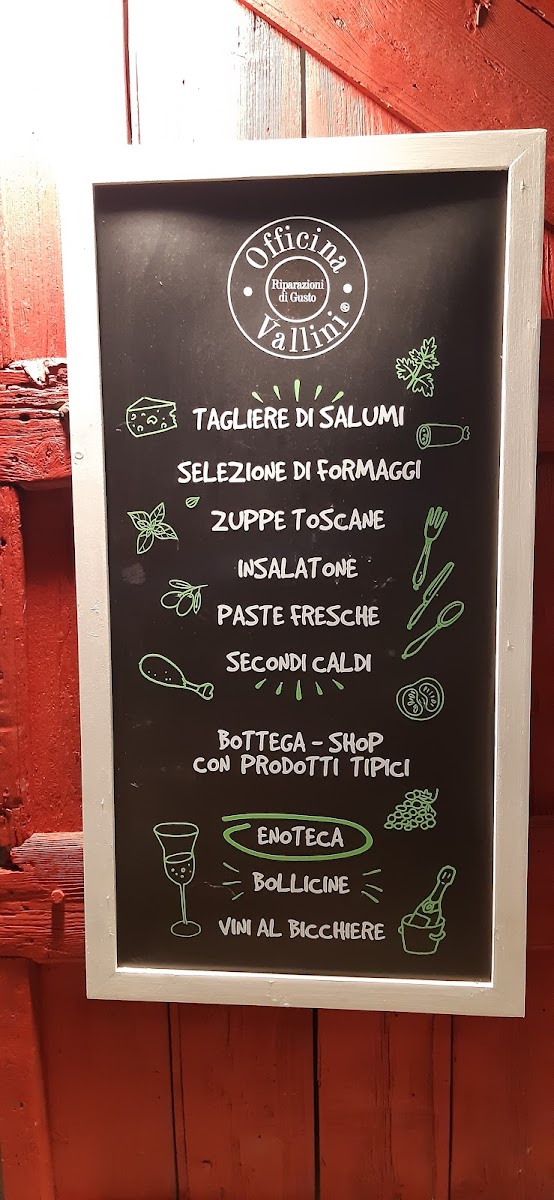 Officina
Riparazioni
di Gusto
Vallini®
TAGLIERE DI SALUMI
SELEZIONE DI FORMAGGI
ZUPPE TOSCANE
INSALATONE
PASTE FRESCHE
SECONDI CALDI
BOTTEGA - SHOP
CON PRODOTTI TIPICI
ENOTECA
BOLLICINE
VINI AL BICCHIERE